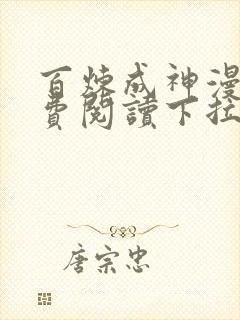 百炼成神漫
费阅读下拉
唐宗忠